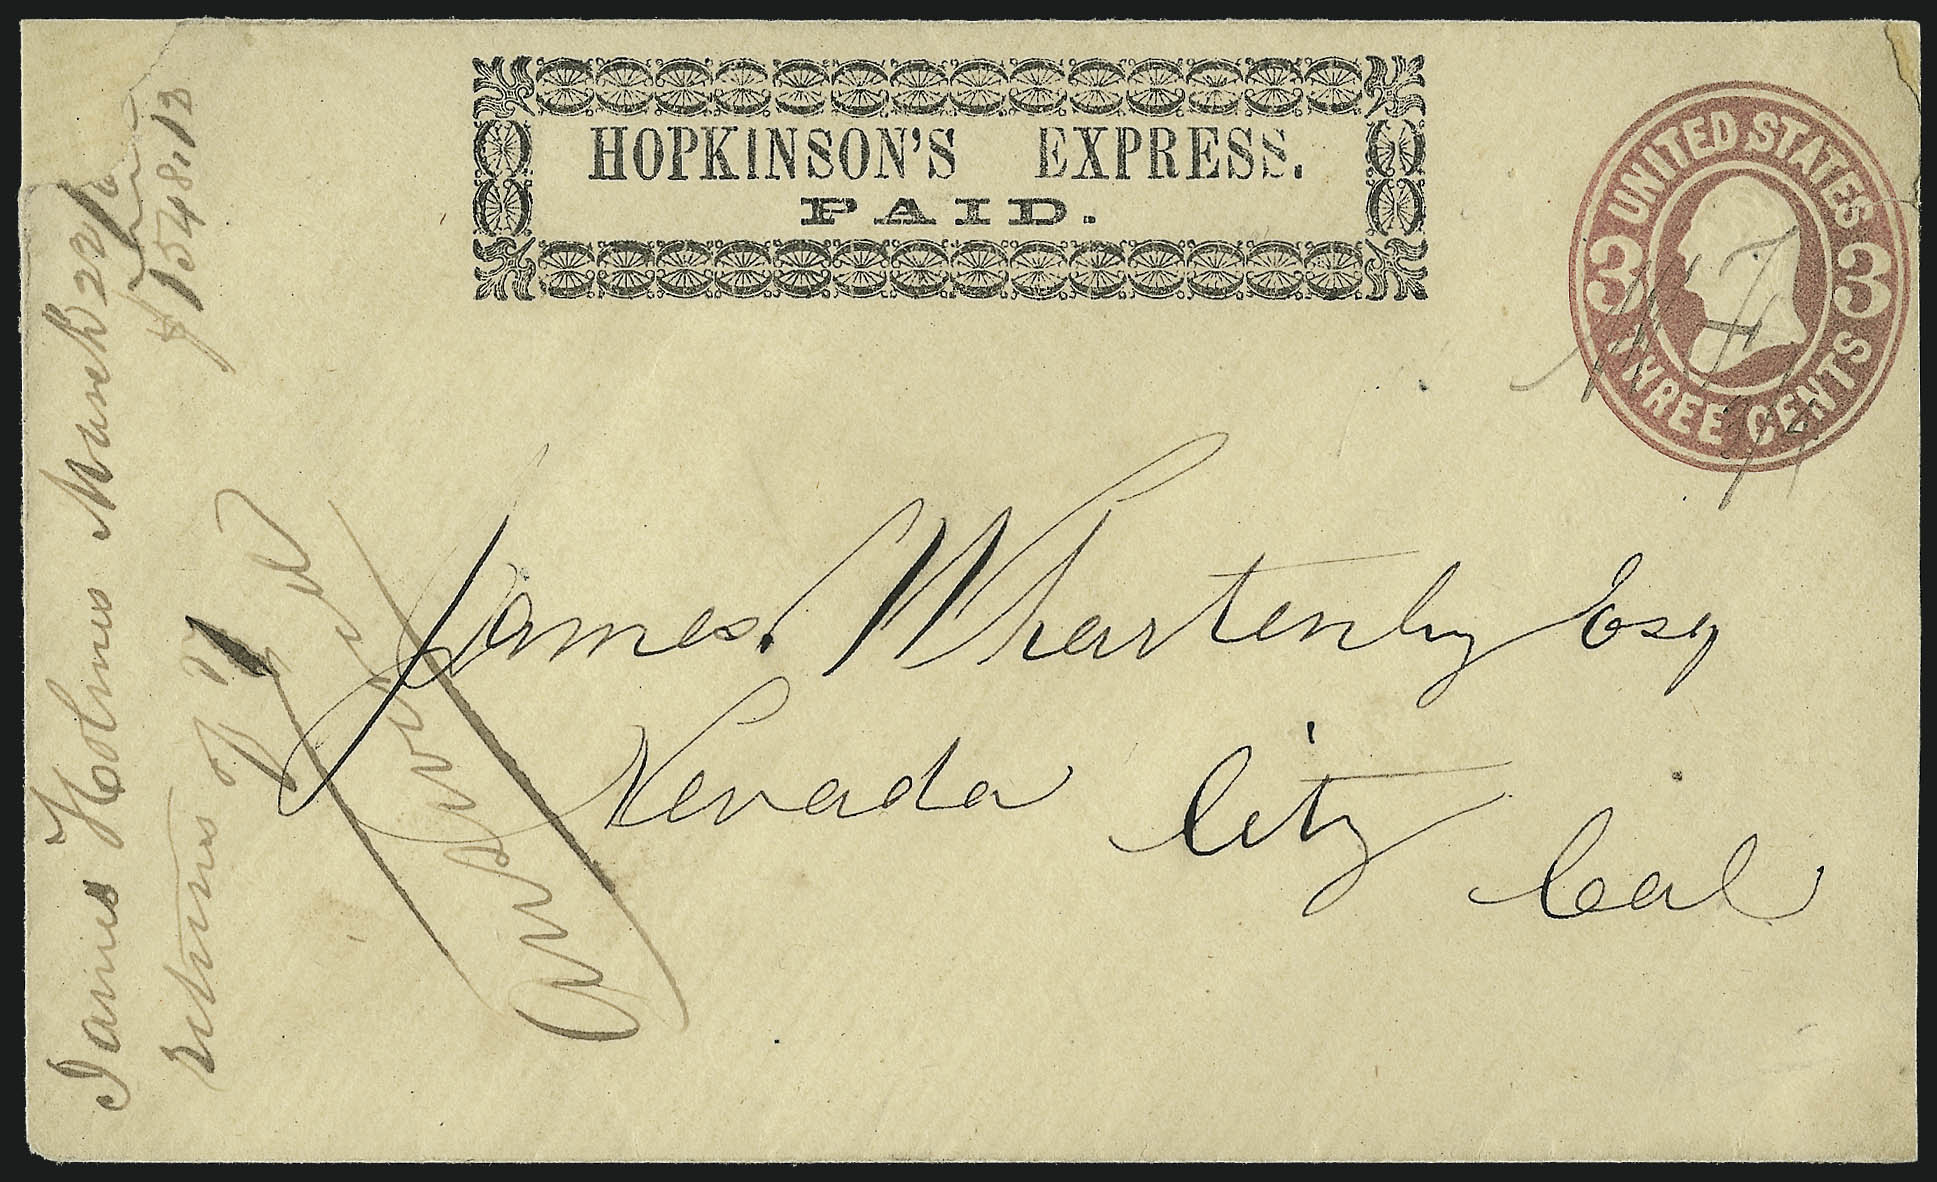 HOPKINSON'S EXPRESS.
PAID.
UNITED STATES
3 3
THREE CENTS
James Whartenby Esq
Nevada City Cal
James Holmes March 22/6
returns of
$1548.12
Answered